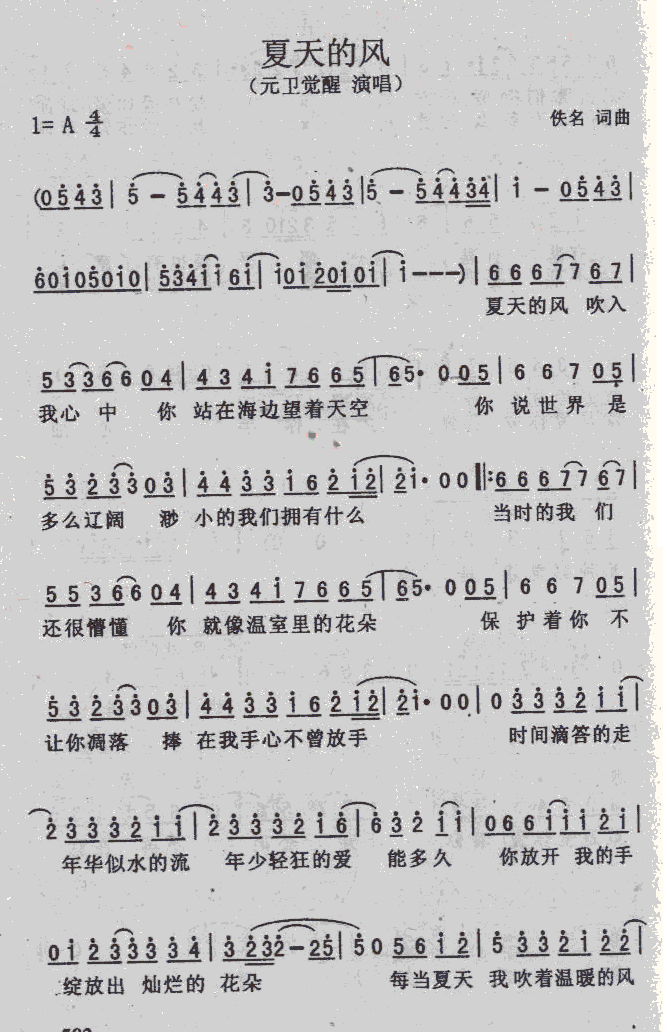 夏天的风
（元卫觉醒 演唱）
1= A 4/4
佚名 词曲
(0543 | 5 – 5443 | 3–0543 | 5 – 54434 | i – 0543 |
60i050i0 | 534ii 6i | i0i20i0i | i–––) | 66677 67 |
夏天的风 吹入
53366 04 | 43 4i 76 665 | 65· 005 | 6 6 7 05 |
我心 中 你 站在海边望着天空 你 说世界 是
53 233 03 | 44 33 i6 2i2 | 2i· 00 |: 66677 67 |
多么辽阔 渺 小的我们拥有什么 当时的我 们
55 366 04 | 43 4i 76 665 | 65· 005 | 6 6 7 05 |
还很懵懂 你 就像温室里的花朵 保 护着你 不
53 233 03 | 44 33 i6 2i2 | 2i· 00 | 0 3 33 2i i |
让你凋落 捧 在我手心不曾放手 时间滴答的走
2 33 32 ii | 2 33 32 i6 | 6 32 ii | 066iii 2i |
年华似水的流 年少轻狂的爱 能多久 你放开 我的手
0i 2333 34 | 3 232–25 | 50 56 i2 | 5 33 2i 22 |
绽放出 灿烂的 花朵 每当夏天 我吹着温暖的风